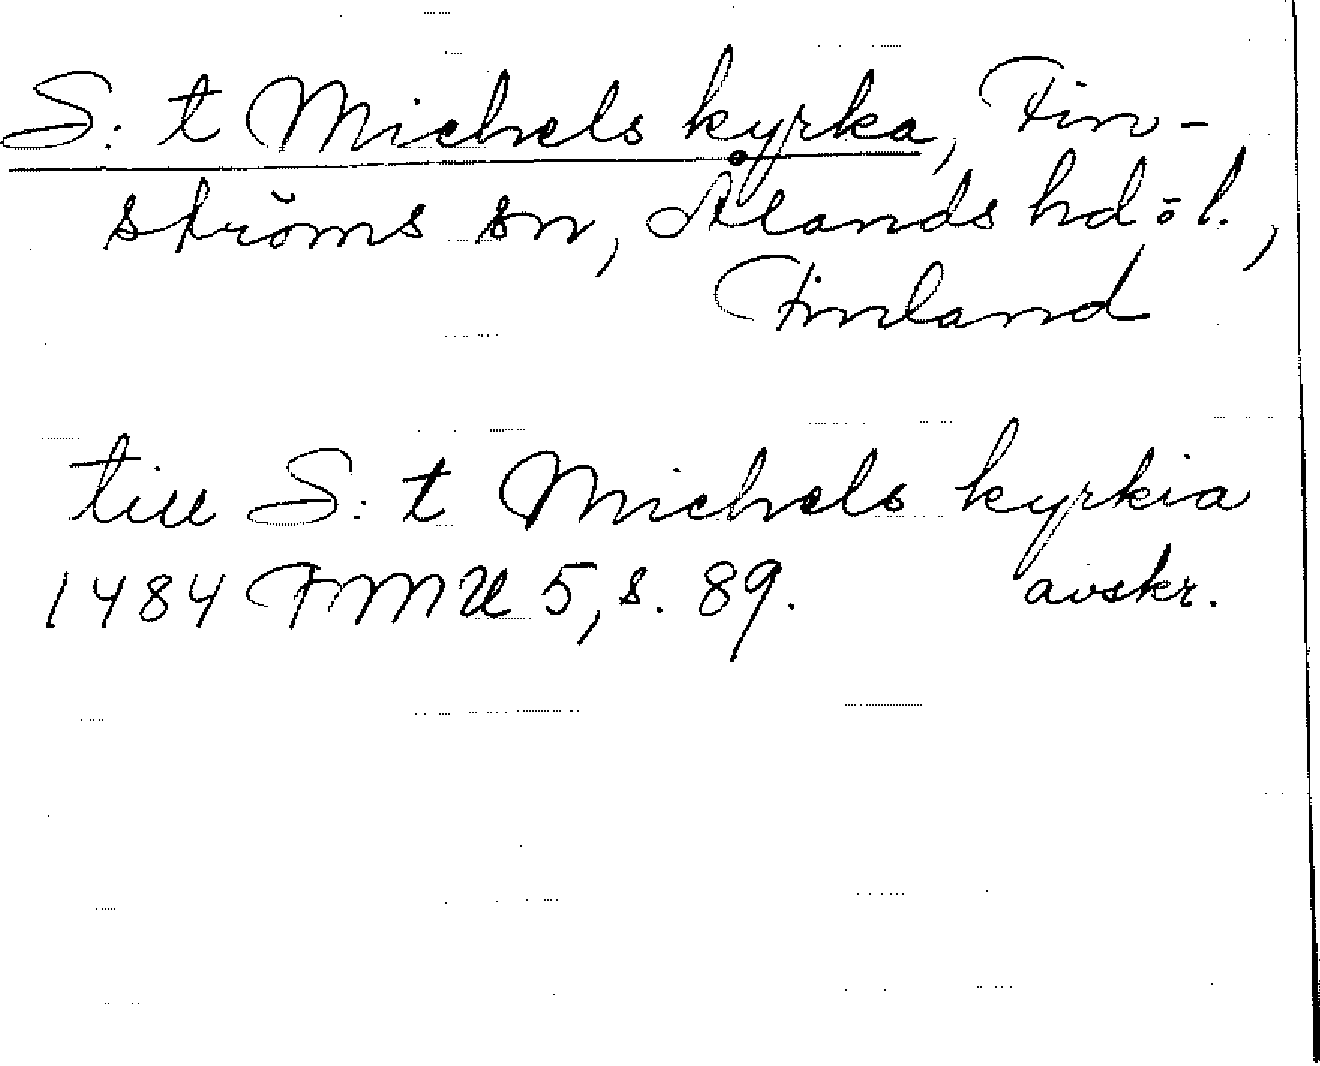 S:t Michels kyrka, Fin-
ströms sn, Ålands hd o l.,
Finland
till S:t Michels kyrkia
1484 FMU 5, s. 89. avskr.